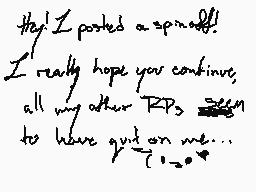 Hey! I posted a spinoff!
I really hope you continue,
all my other RPs seem
to have quit on me...